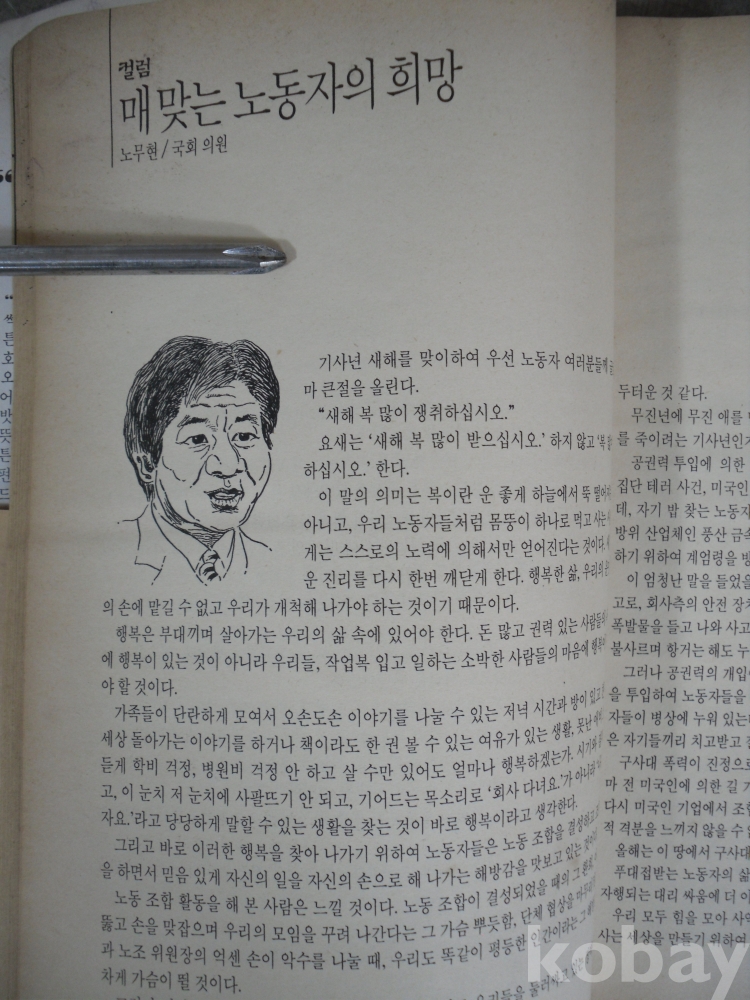 컬럼
매 맞는 노동자의 희망
노무현/국회 의원
기사년 새해를 맞이하여 우선 노동자 여러분들께
마 큰절을 올린다.
“새해 복 많이 쟁취하십시오.”
요새는 ‘새해 복 많이 받으십시오.’ 하지 않고
하십시오.’ 한다.
이 말의 의미는 복이란 운 좋게 하늘에서 뚝
아니고, 우리 노동자들처럼 몸뚱이 하나로 먹고 사는
게는 스스로의 노력에 의해서만 얻어진다는 것이다.
운 진리를 다시 한번 깨닫게 한다. 행복한 삶, 우리의
의 손에 맡길 수 없고 우리가 개척해 나가야 하는 것이기 때문이다.
행복은 부대끼며 살아가는 우리의 삶 속에 있어야 한다. 돈 많고 권력 있는 사람들의
에 행복이 있는 것이 아니라 우리들, 작업복 입고 일하는 소박한 사람들의 마음에
야 할 것이다.
가족들이 단란하게 모여서 오손도손 이야기를 나눌 수 있는 저녁 시간과 방이 있고
세상 돌아가는 이야기를 하거나 책이라도 한 권 볼 수 있는 여유가 있는 생활, 못난
듣게 학비 걱정, 병원비 걱정 안 하고 살 수만 있어도 얼마나 행복하겠는가.
고, 이 눈치 저 눈치에 사팔뜨기 안 되고, 기어드는 목소리로 ‘회사 다녀요.’가 아니라
자요.’라고 당당하게 말할 수 있는 생활을 찾는 것이 바로 행복이라고 생각한다.
그리고 바로 이러한 행복을 찾아 나가기 위하여 노동자들은 노동 조합을 결성하고
을 하면서 믿음 있게 자신의 일을 자신의 손으로 해 나가는 해방감을 맛보고 있는
노동 조합 활동을 해 본 사람은 느낄 것이다. 노동 조합이 결성되었을 때의 그
뚫고 손을 맞잡으며 우리의 모임을 꾸려 나간다는 그 가슴 뿌듯함, 단체 협상을
과 노조 위원장의 억센 손이 악수를 나눌 때, 우리도 똑같이 평등한 인간이라는
차게 가슴이 뛸 것이다.
두터운 것 같다.
무진년에 무진 애를
를 죽이려는 기사년인가
공권력 투입에 의한
집단 테러 사건, 미국인
데, 자기 밥 찾는 노동자
방위 산업체인 풍산 금속
하기 위하여 계엄령을 방
이 엄청난 말을 들었을
고로, 회사측의 안전 장치
폭발물을 들고 나와 사고
불사르며 항거는 해도 누
그러나 공권력의 개입이
을 투입하여 노동자들을
자들이 병상에 누워 있는
은 자기들끼리 치고받고
구사대 폭력이 진정으로
마 전 미국인에 의한 길
다시 미국인 기업에서 조합
적 격분을 느끼지 않을 수 없
올해는 이 땅에서 구사대
푸대접받는 노동자의 삶
자행되는 대리 싸움에 더 이
우리 모두 힘을 모아 사악
사는 세상을 만들기 위하여
kobay